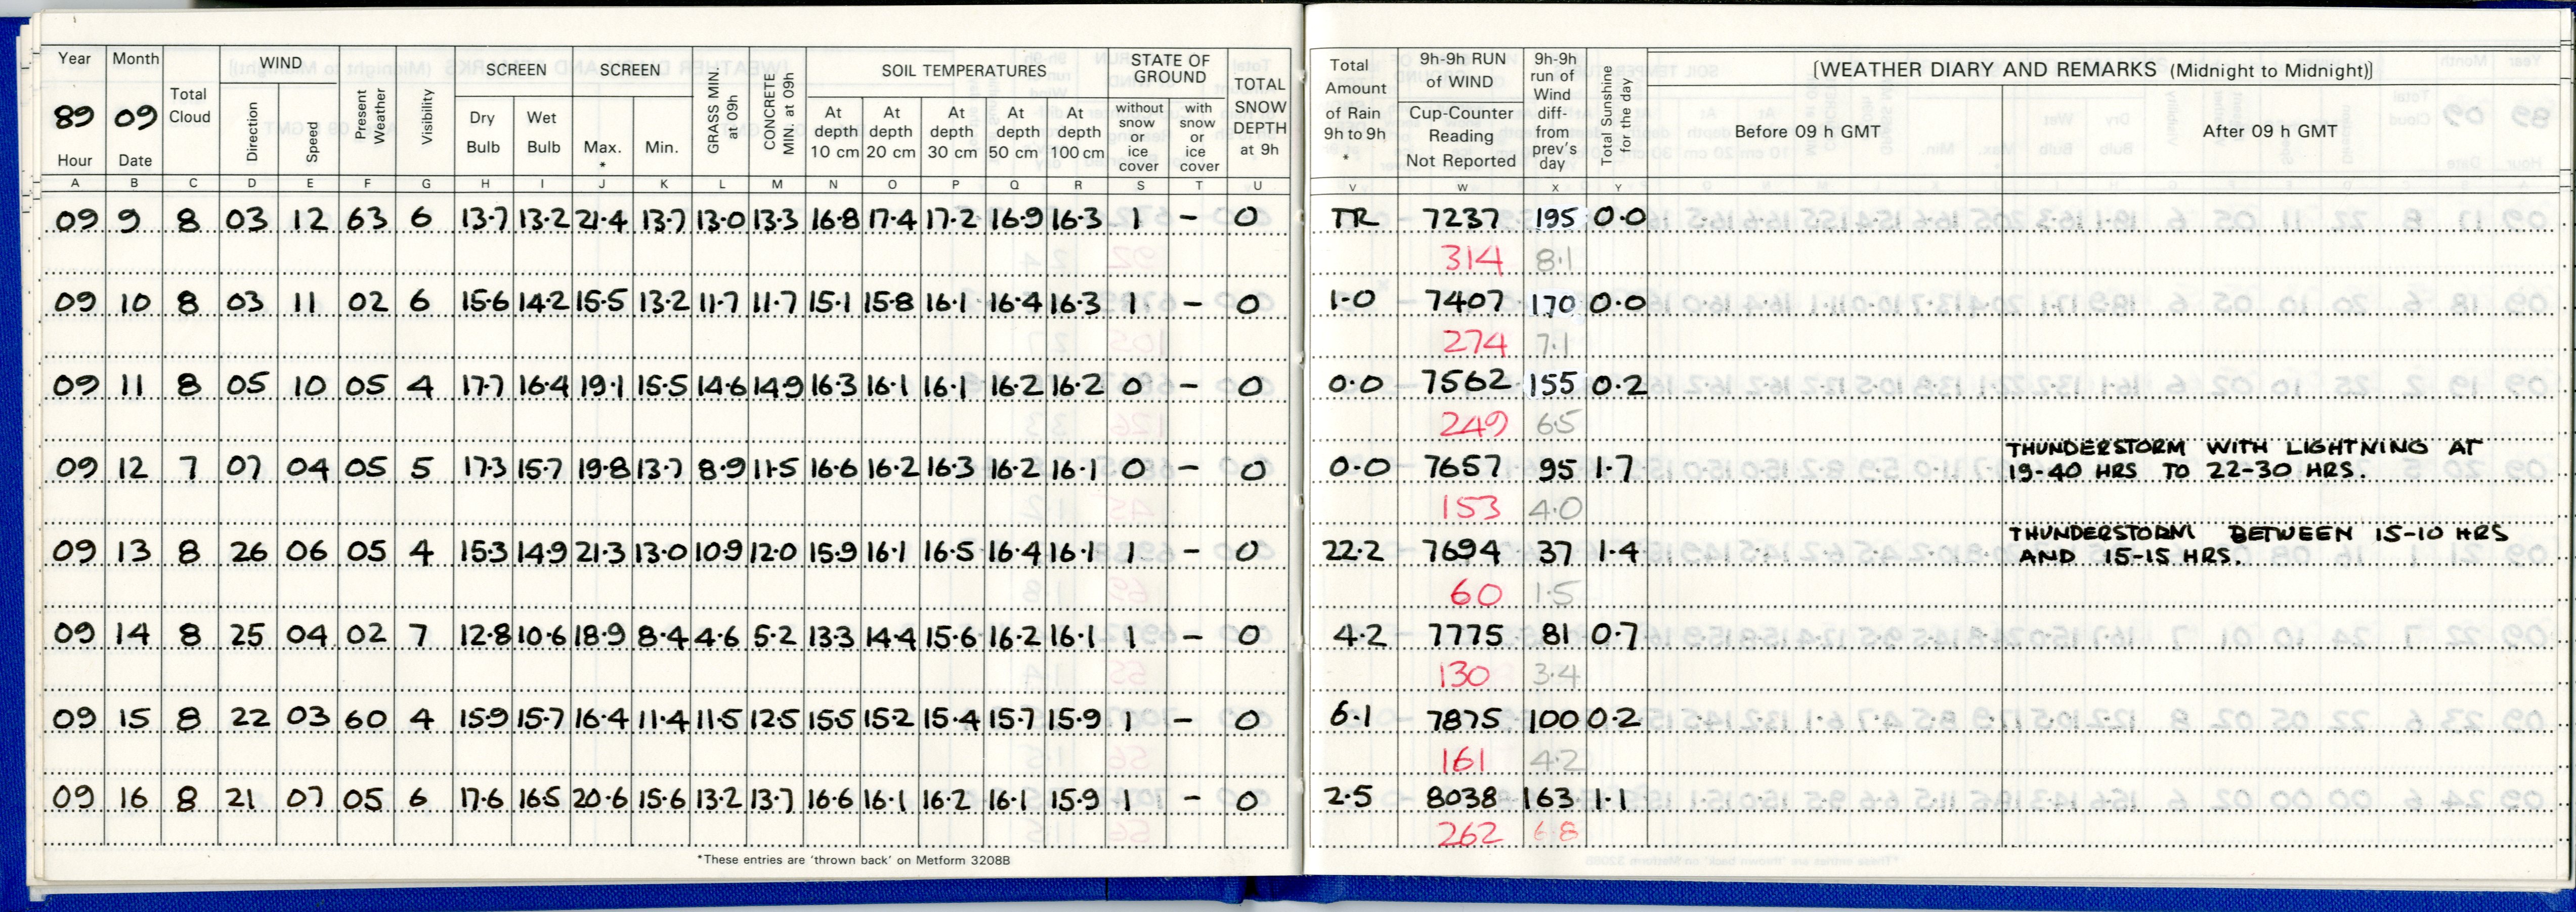 Year Month Total Cloud WIND Present Weather Visibility SCREEN SCREEN GRASS MIN. at 09h CONCRETE MIN. at 09h SOIL TEMPERATURES STATE OF GROUND TOTAL SNOW DEPTH at 9h Total Amount of Rain 9h to 9h * 9h-9h RUN of WIND 9h-9h run of Wind diff- from prev's day Total Sunshine for the day [WEATHER DIARY AND REMARKS (Midnight to Midnight)]
89 09 Direction Speed Dry Bulb Wet Bulb Max. * Min. At depth 10 cm At depth 20 cm At depth 30 cm At depth 50 cm At depth 100 cm without snow or ice cover with snow or ice cover Cup-Counter Reading Not Reported Before 09 h GMT After 09 h GMT
Hour Date
A B C D E F G H I J K L M N O P Q R S T U V W X Y
09 9 8 03 12 63 6 13.7 13.2 21.4 13.7 13.0 13.3 16.8 17.4 17.2 16.9 16.3 1 – 0 TR 7237 195 0.0
314 8.1
09 10 8 03 11 02 6 15.6 14.2 15.5 13.2 11.7 11.7 15.1 15.8 16.1 16.4 16.3 1 – 0 1.0 7407 170 0.0
274 7.1
09 11 8 05 10 05 4 17.7 16.4 19.1 15.5 14.6 14.9 16.3 16.1 16.1 16.2 16.2 0 – 0 0.0 7562 155 0.2
249 6.5
THUNDERSTORM WITH LIGHTNING AT
09 12 7 07 04 05 5 17.3 15.7 19.8 13.7 8.9 11.5 16.6 16.2 16.3 16.2 16.1 0 – 0 0.0 7657 95 1.7 19-40 HRS TO 22-30 HRS.
153 4.0
THUNDERSTORM BETWEEN 15-10 HRS
09 13 8 26 06 05 4 15.3 14.9 21.3 13.0 10.9 12.0 15.9 16.1 16.5 16.4 16.1 1 – 0 22.2 7694 37 1.4 AND 15-15 HRS.
60 1.5
09 14 8 25 04 02 7 12.8 10.6 18.9 8.4 4.6 5.2 13.3 14.4 15.6 16.2 16.1 1 – 0 4.2 7775 81 0.7
130 3.4
09 15 8 22 03 60 4 15.9 15.7 16.4 11.4 11.5 12.5 15.5 15.2 15.4 15.7 15.9 1 – 0 6.1 7875 100 0.2
161 4.2
09 16 8 21 07 05 6 17.6 16.5 20.6 15.6 13.2 13.7 16.6 16.1 16.2 16.1 15.9 1 – 0 2.5 8038 163 1.1
262 6.8
*These entries are 'thrown back' on Metform 3208B